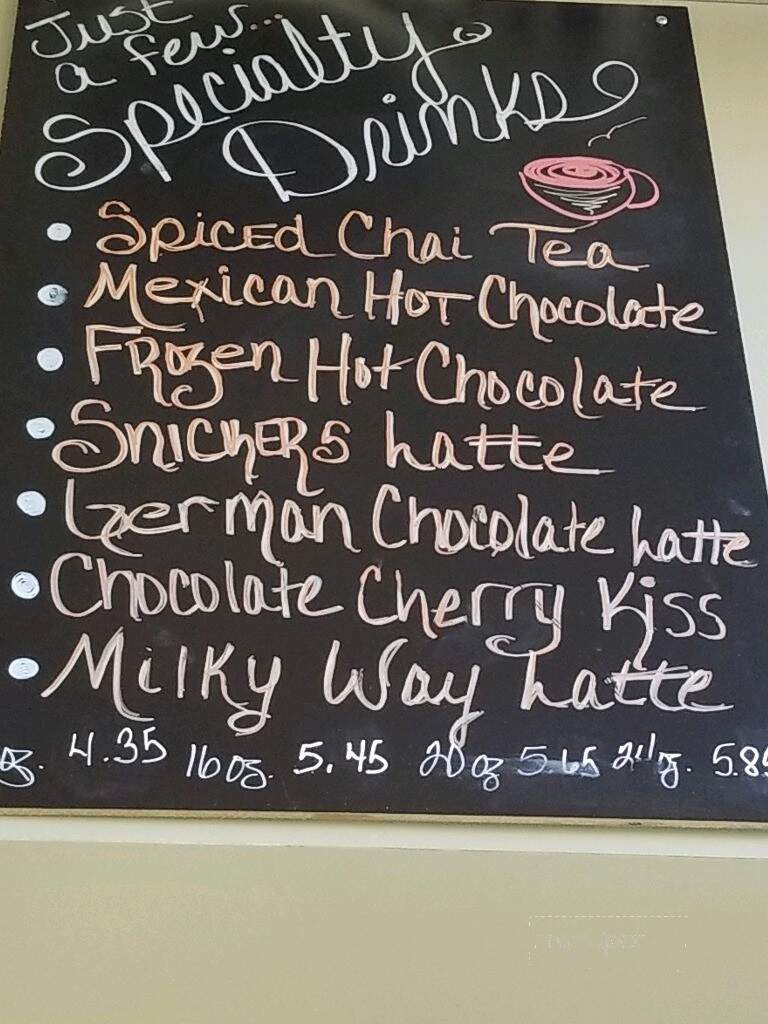 Just
a few...
Specialty
Drinks
Spiced Chai Tea
Mexican Hot Chocolate
Frozen Hot Chocolate
Snickers Latte
German Chocolate Latte
Chocolate Cherry Kiss
Milky Way Latte
oz. 4.35 16 oz. 5.45 20 oz 5.65 24 oz. 5.85